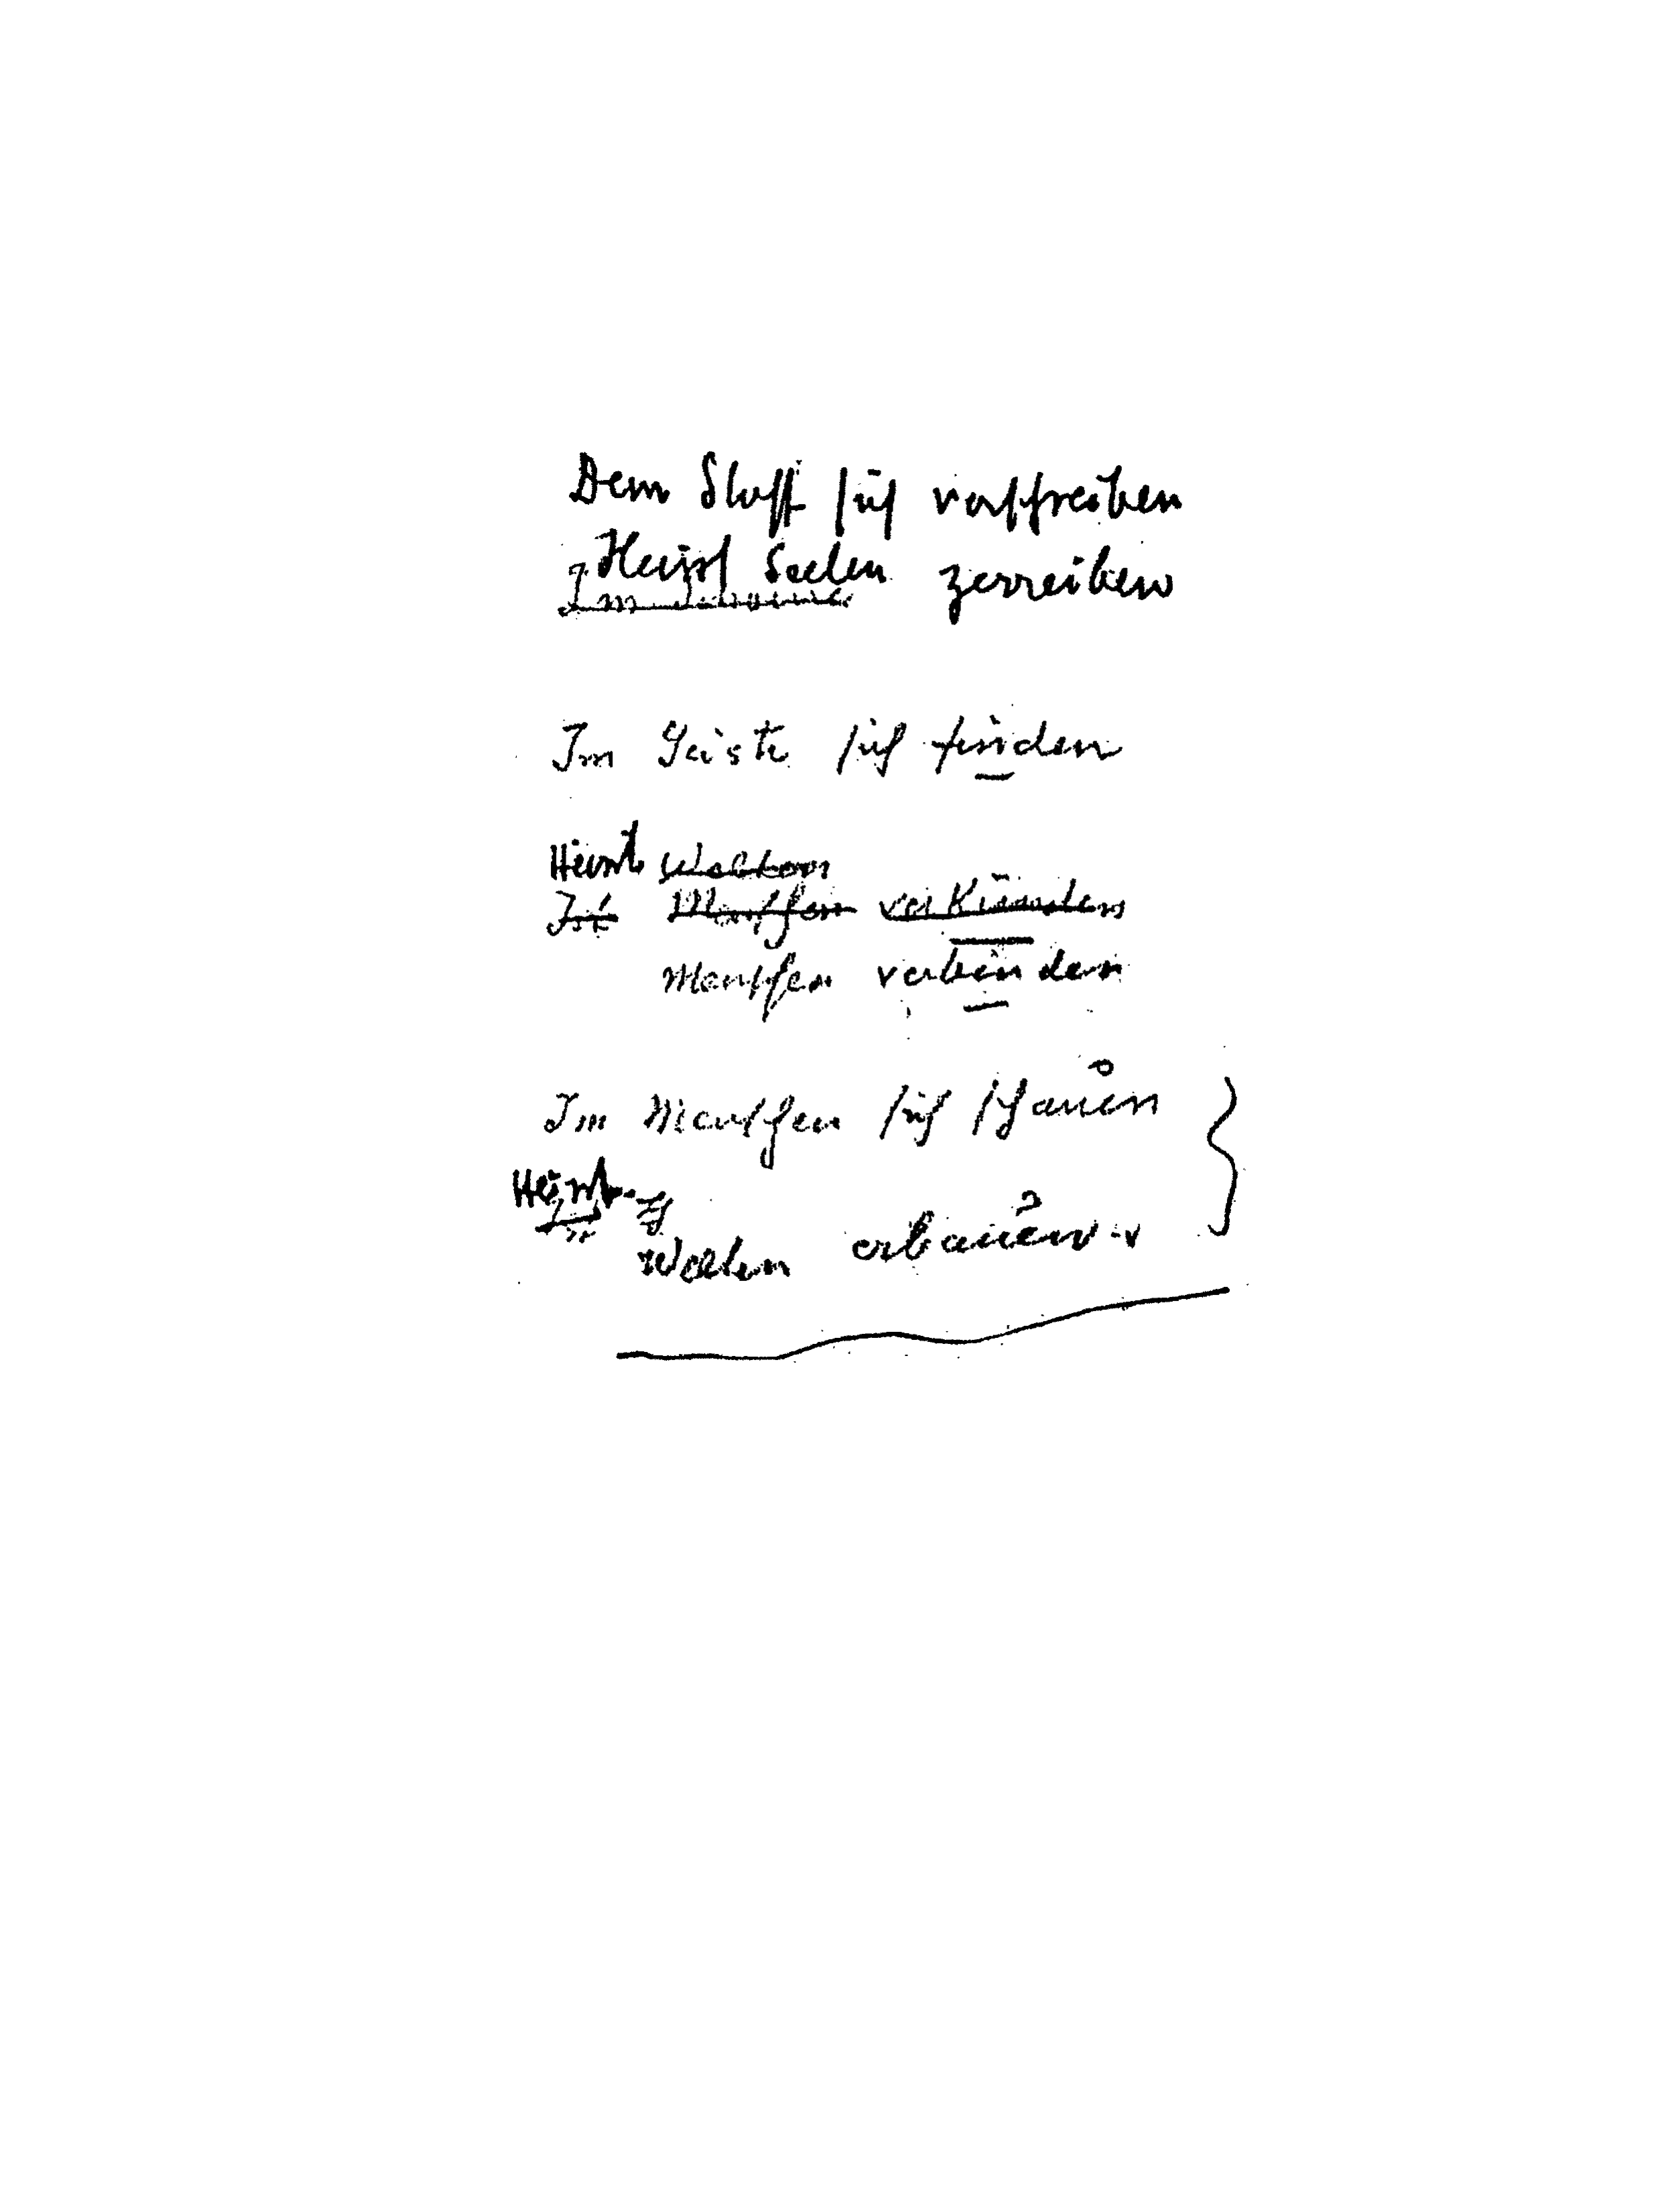 Dem Stoff sich verschreiben
Heisst Seelen zerreiben
Im
Im Geiste sich finden
Heisst Welten
Ist Menschen verkünden
Menschen verbinden
Im Menschen sich schauen
Heisst
Welten erbauen